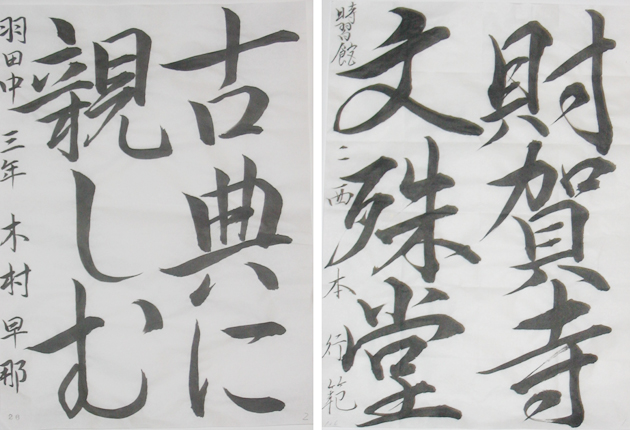 古典に
親しむ
羽田中 三年 木村早那
財賀寺
文殊堂
時習館 二 西本行範